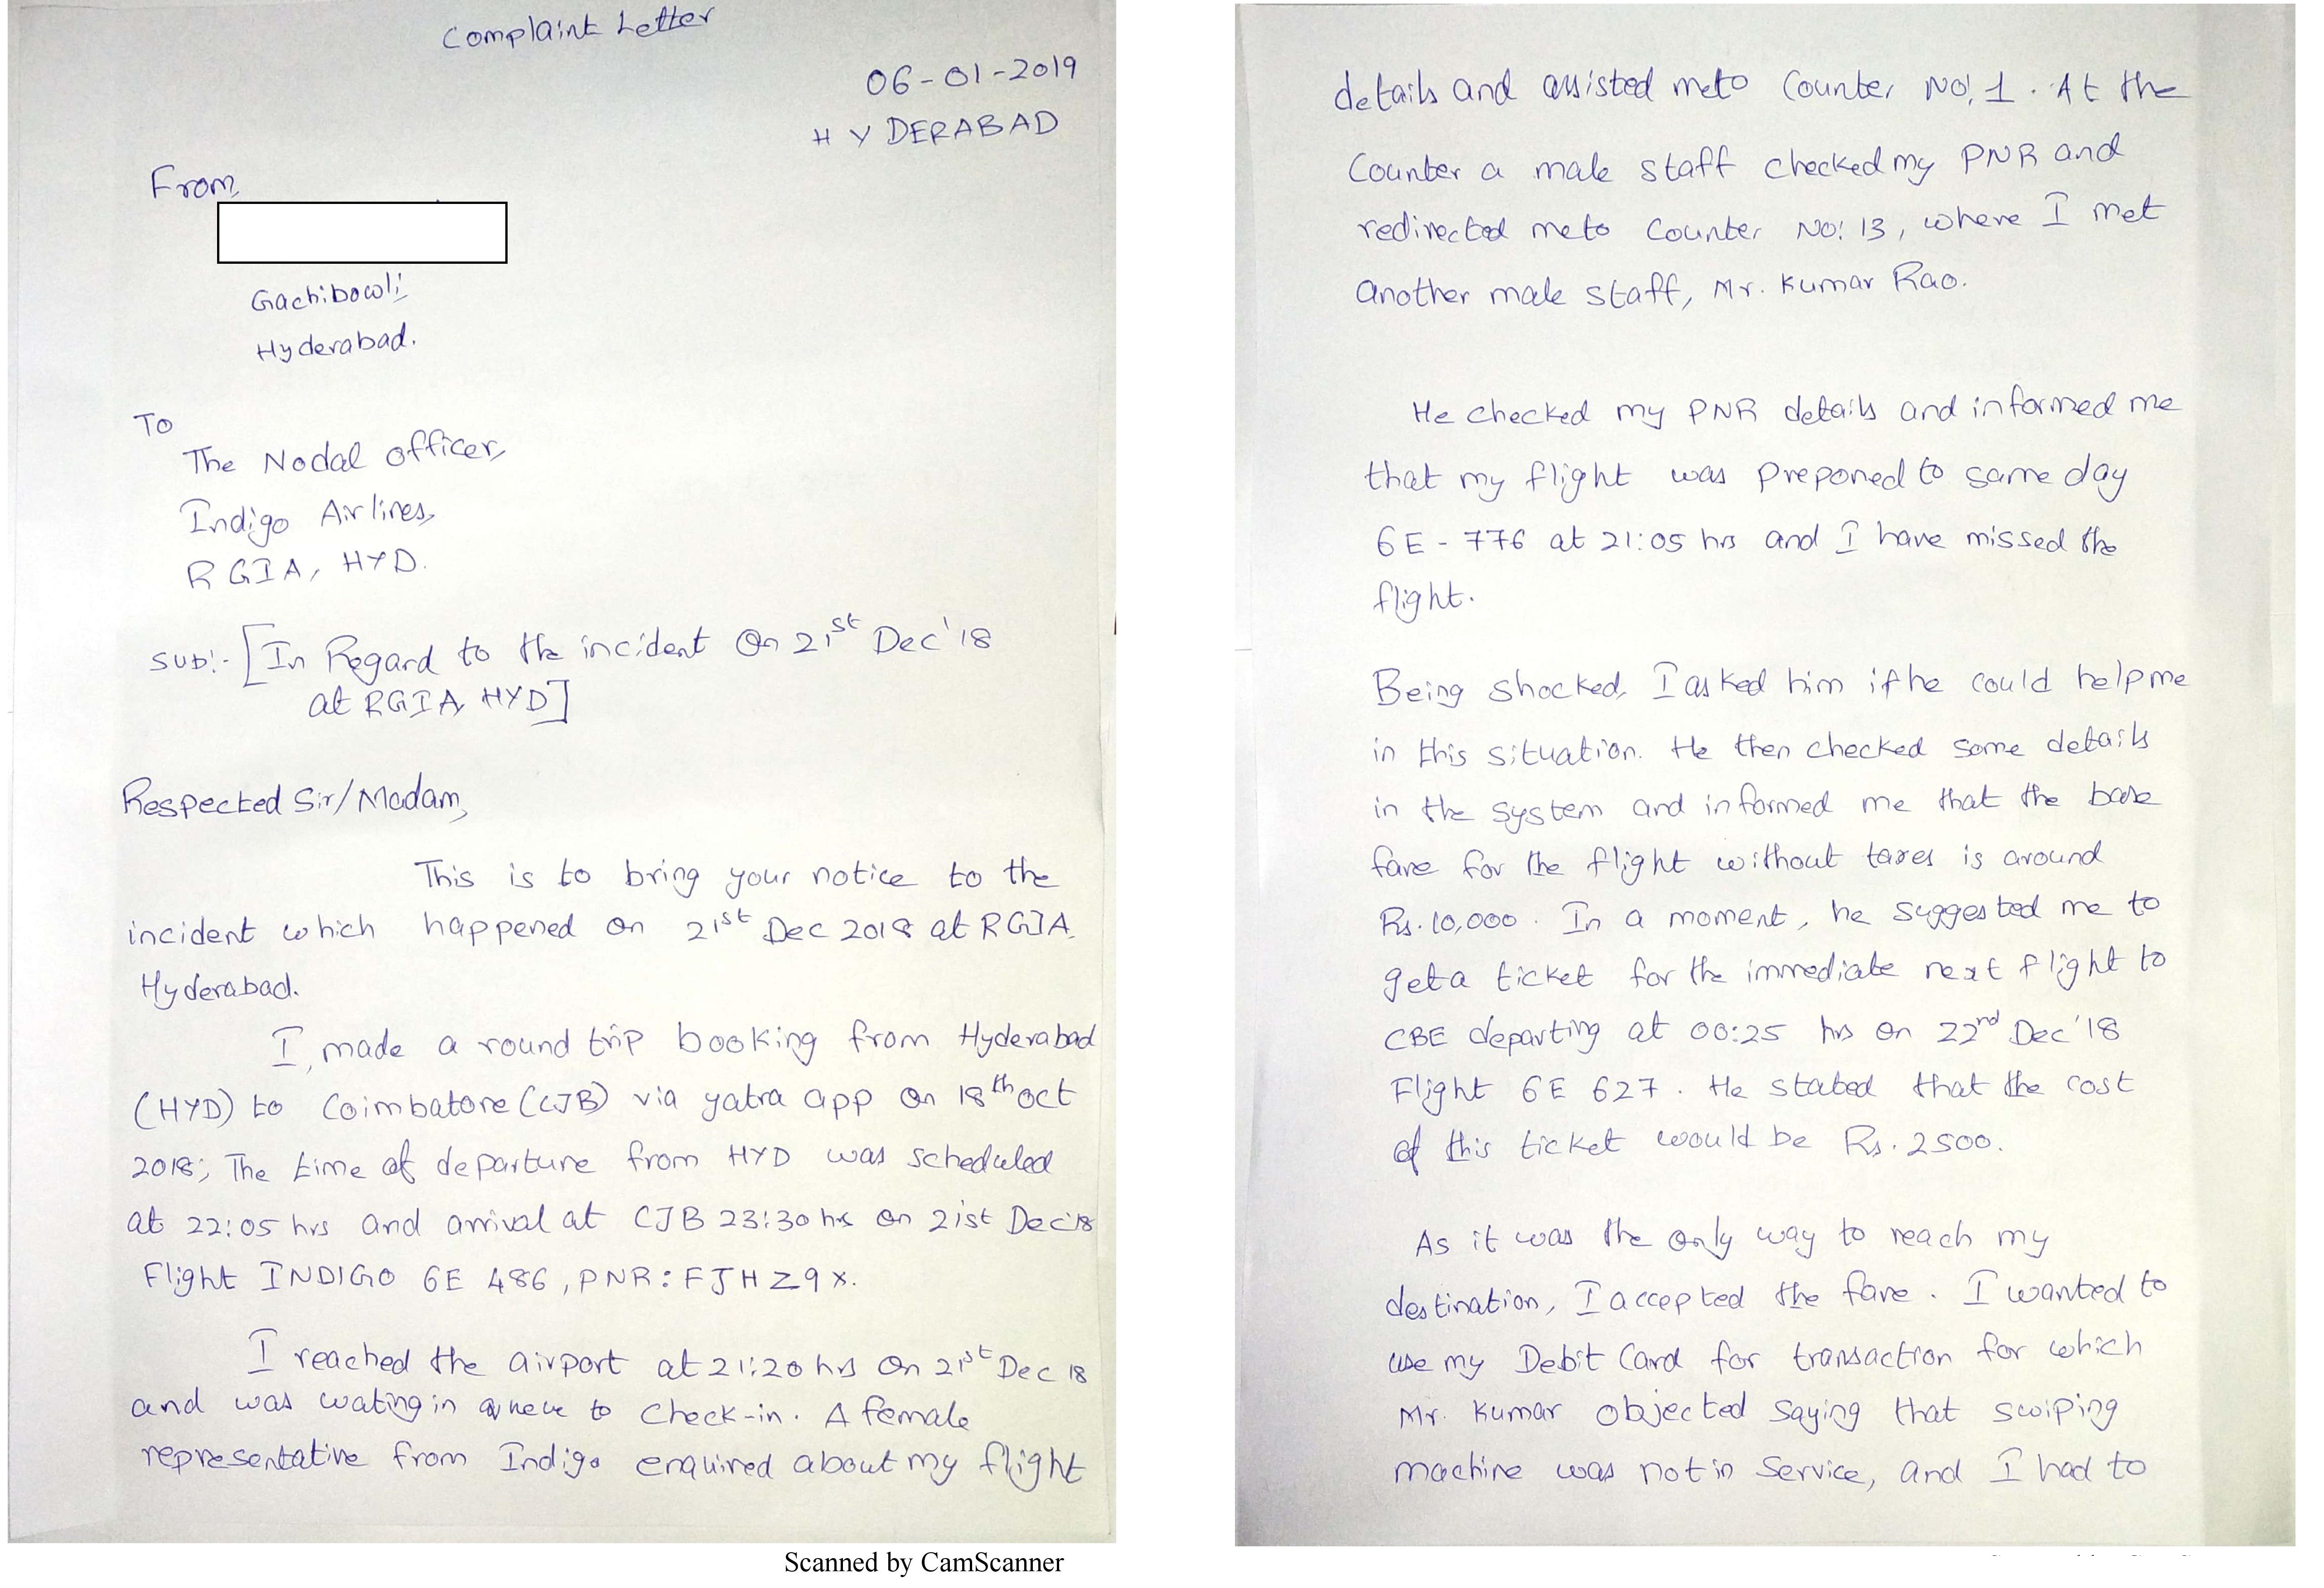 Complaint Letter
06-01-2019
HYDERABAD
From,
Gachibowli,
Hyderabad.
To
The Nodal officer,
Indigo Airlines,
RGIA, HYD.
SUB:- [In Regard to the incident On 21st Dec'18
at RGIA, HYD]
Respected Sir/Madam,
This is to bring your notice to the
incident which happened on 21st Dec 2018 at RGIA,
Hyderabad.
I, made a round trip booking from Hyderabad
(HYD) to Coimbatore (CJB) via yatra app on 18th oct
2018; The time of departure from HYD was scheduled
at 22:05 hrs and arrival at CJB 23:30 hrs on 21st Dec'18
Flight INDIGO 6E 486, PNR: FJHZ9X.
I reached the airport at 21:20 hrs on 21st Dec 18
and was wating in queue to check-in. A female
representative from Indigo enquired about my flight
Scanned by CamScanner
details and assisted me to Counter NO: 1. At the
Counter a male staff checked my PNR and
redirected me to Counter NO: 13, where I met
another male staff, Mr. Kumar Rao.
He checked my PNR details and informed me
that my flight was preponed to same day
6E-776 at 21:05 hrs and I have missed the
flight.
Being shocked, I asked him if he could help me
in this situation. He then checked some details
in the system and informed me that the base
fare for the flight without taxes is around
Rs. 10,000. In a moment, he suggested me to
get a ticket for the immediate next flight to
CBE departing at 00:25 hrs on 22nd Dec'18
Flight 6E 627. He stated that the cost
of this ticket would be Rs. 2500.
As it was the only way to reach my
destination, I accepted the fare. I wanted to
use my Debit Card for transaction for which
Mr. Kumar objected saying that swiping
machine was not in service, and I had to